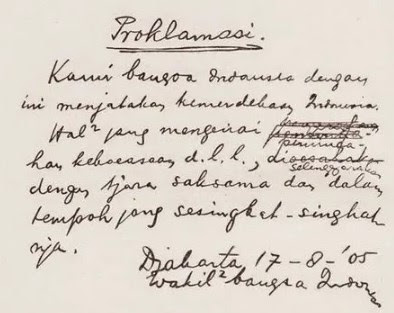 Proklamasi.
Kami bangsa Indonesia dengan
ini menjatakan kemerdekaan Indonesia.
Hal² jang mengenai
peminda-
han keboeasaan d.l.l.,
diselenggarakan
dengan tjara saksama dan dalam
tempoh jang sesingket-singkat
nja.
Djakarta, 17-8-'05
Wakil² bangsa Indonesia